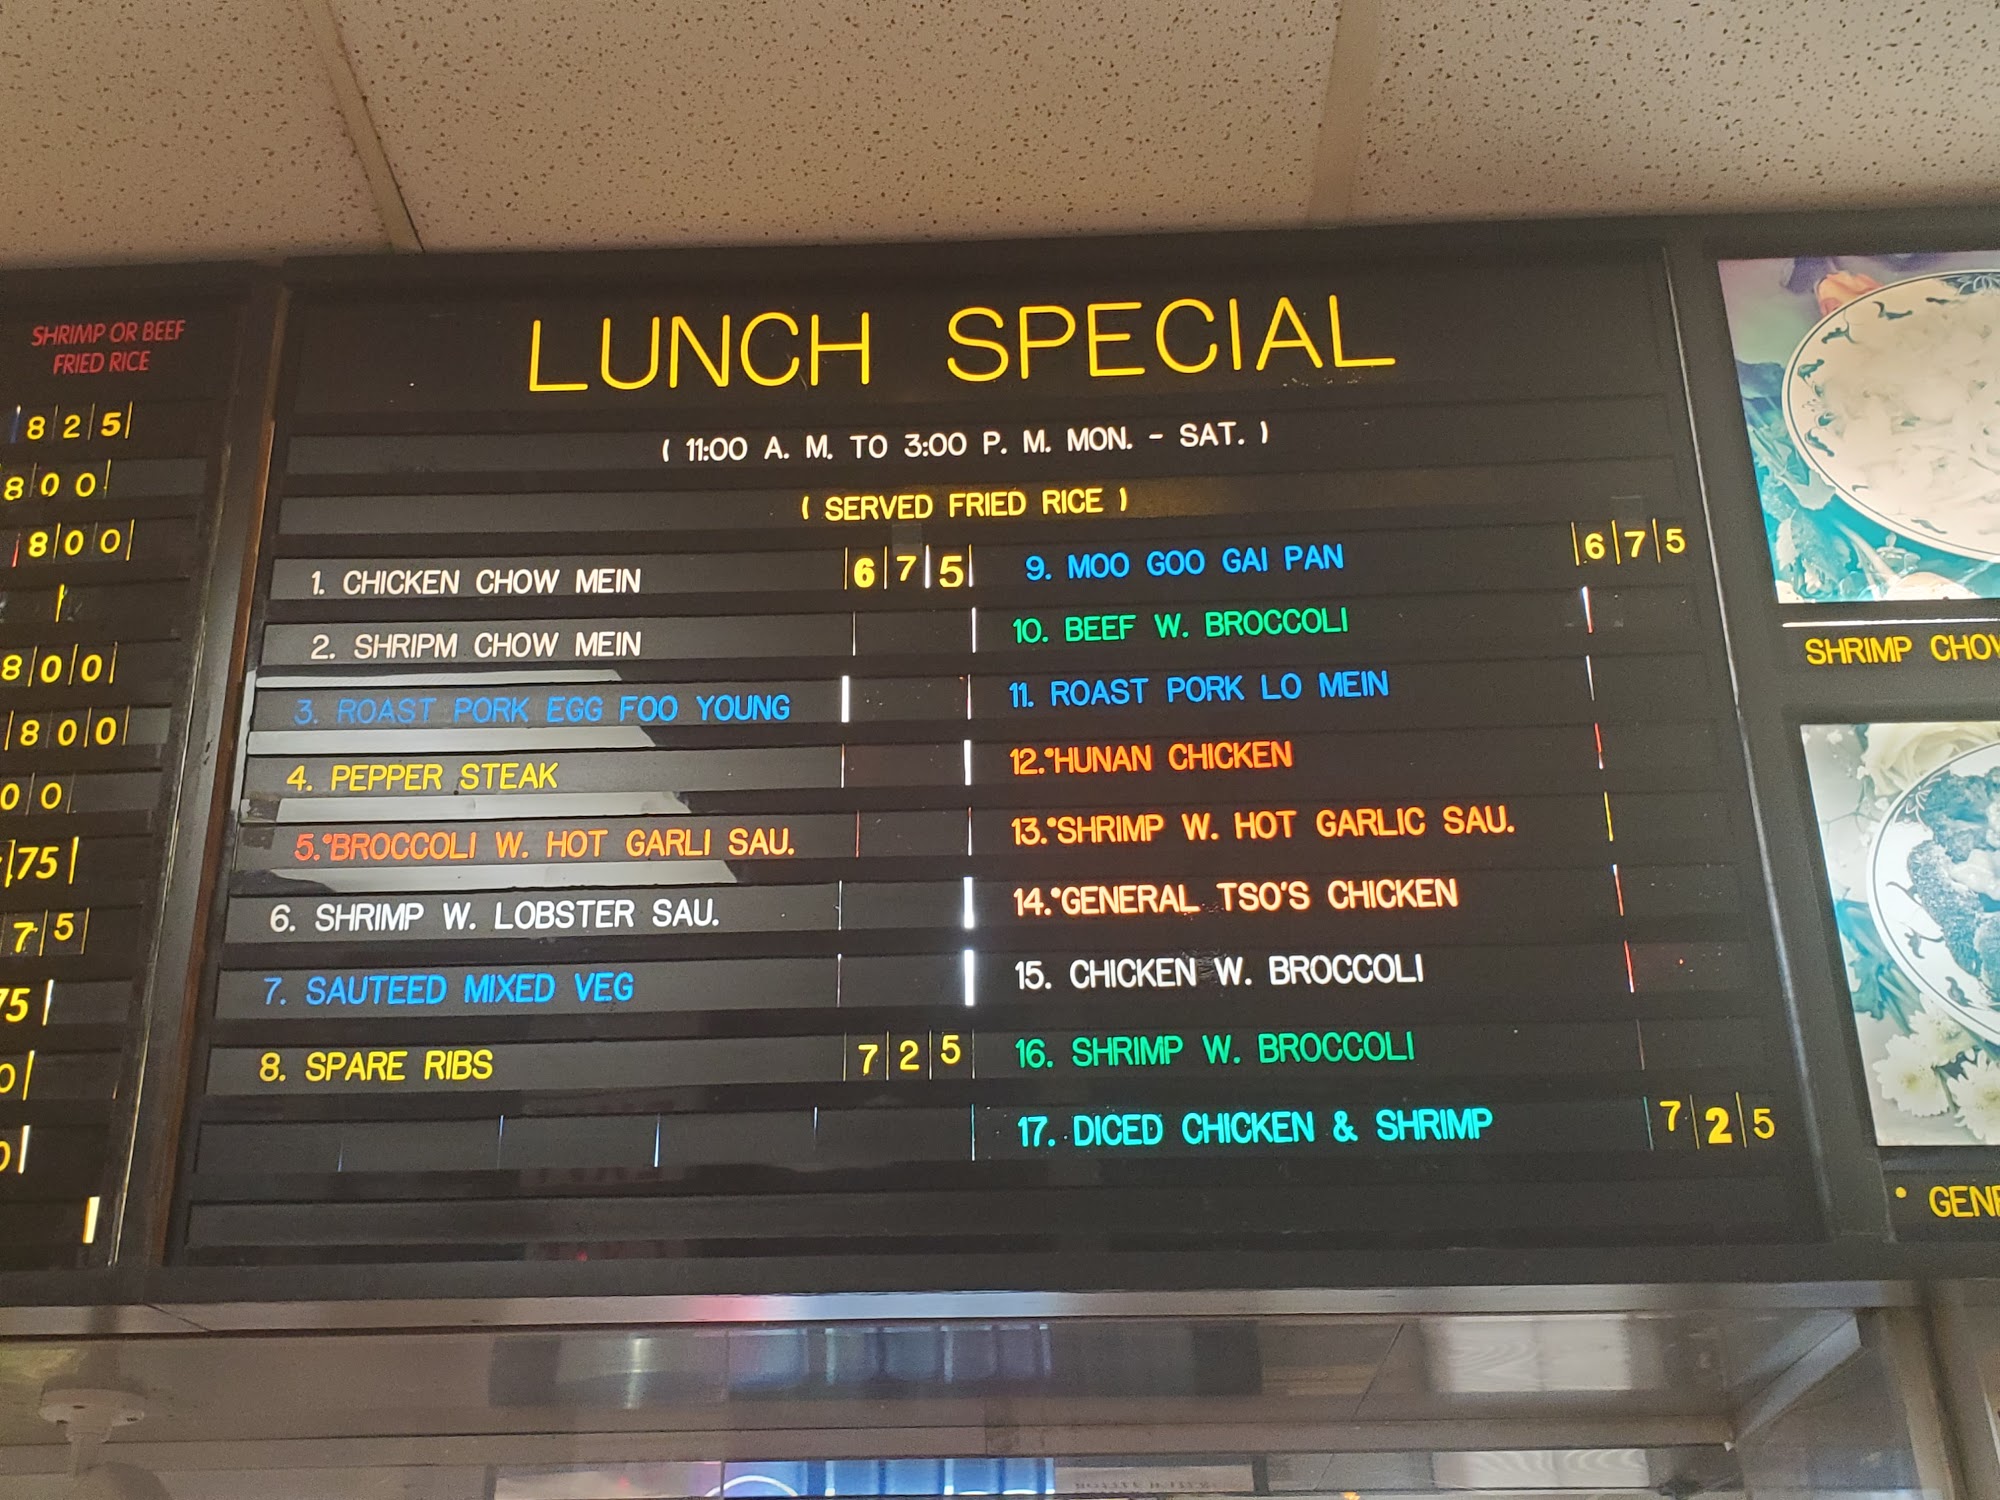 SHRIMP OR BEEF
FRIED RICE
8 2 5
8 0 0
8 0 0
8 0 0
8 0 0
0 0
75
7 5
75
0
0
LUNCH SPECIAL
( 11:00 A. M. TO 3:00 P. M. MON. - SAT. )
( SERVED FRIED RICE )
1. CHICKEN CHOW MEIN 6 7 5
2. SHRIPM CHOW MEIN
3. ROAST PORK EGG FOO YOUNG
4. PEPPER STEAK
5.*BROCCOLI W. HOT GARLI SAU.
6. SHRIMP W. LOBSTER SAU.
7. SAUTEED MIXED VEG
8. SPARE RIBS 7 2 5
9. MOO GOO GAI PAN 6 7 5
10. BEEF W. BROCCOLI
11. ROAST PORK LO MEIN
12.*HUNAN CHICKEN
13.*SHRIMP W. HOT GARLIC SAU.
14.*GENERAL TSO'S CHICKEN
15. CHICKEN W. BROCCOLI
16. SHRIMP W. BROCCOLI
17. DICED CHICKEN & SHRIMP 7 2 5
SHRIMP CHOW
* GENE